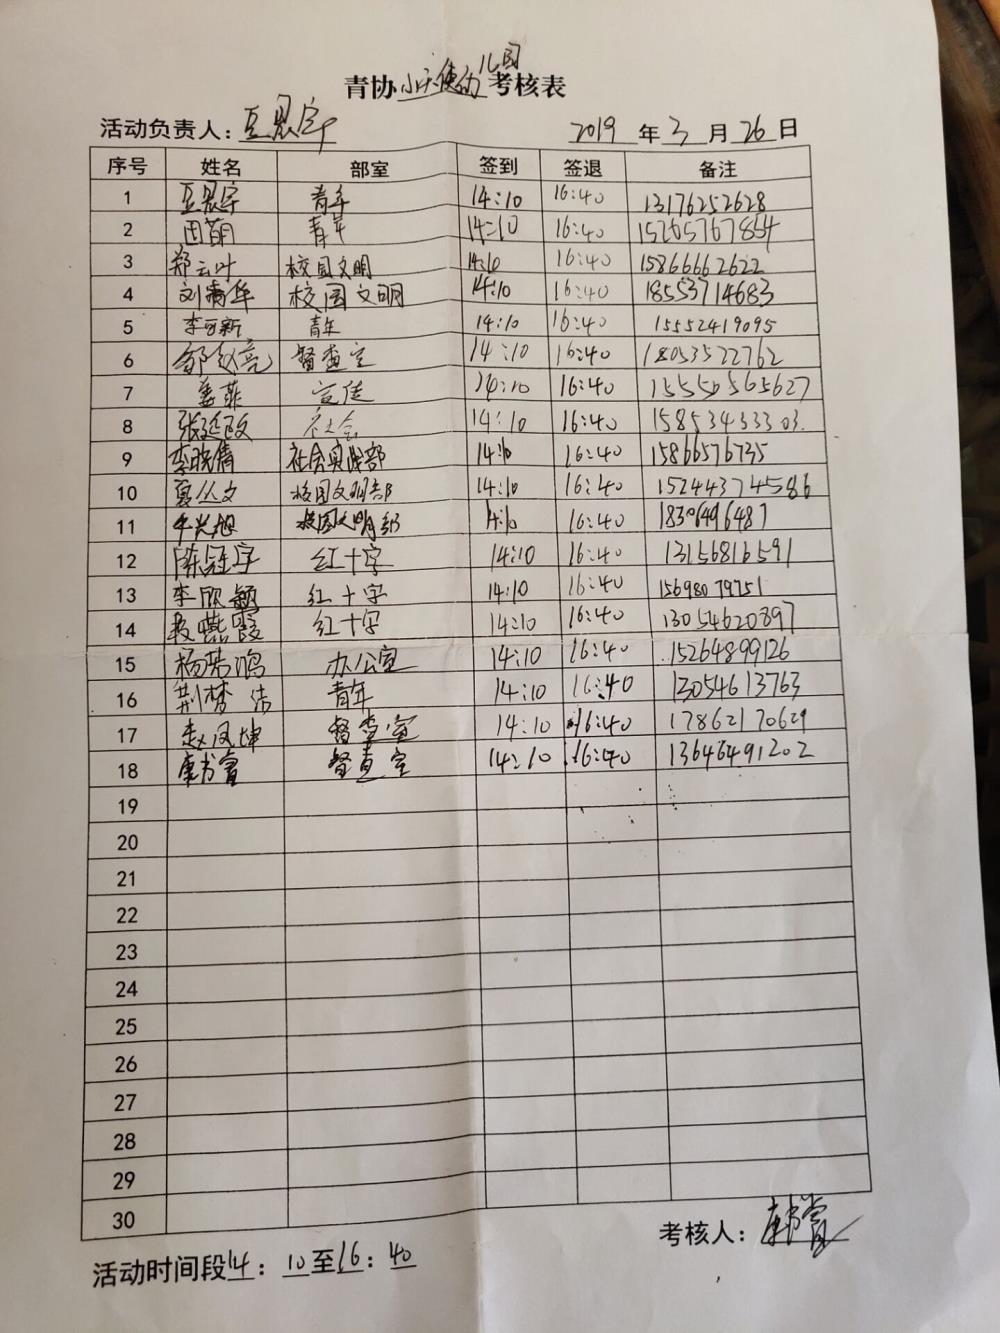 青协小天使幼儿园考核表
活动负责人：豆恩宇 2019 年 3 月 26 日
序号 姓名 部室 签到 签退 备注
1 豆恩宇 青年 14:10 16:40 13176252628
2 田萌 青年 14:10 16:40 15265767854
3 郑云叶 校园文明 14:10 16:40 15866662622
4 刘青华 校园文明 14:10 16:40 18553714683
5 李可新 青年 14:10 16:40 15552419095
6 邹赵亮 督查室 14:10 16:40 18053522762
7 姜菲 宣传 14:10 16:40 15550565627
8 张延政 社会 14:10 16:40 15853433303
9 李晓倩 社会实践部 14:10 16:40 15866576735
10 夏丛文 校园文明部 14:10 16:40 15244374586
11 牟兴旭 校园文明部 14:10 16:40 18306496487
12 陈冠宇 红十字 14:10 16:40 13156816591
13 李欣颖 红十字 14:10 16:40 15698079751
14 段燕霞 红十字 14:10 16:40 13054620897
15 杨芳鸿 办公室 14:10 16:40 15264899126
16 荆梦洁 青年 14:10 16:40 13054613763
17 赵凤坤 督查室 14:10 16:40 17862170629
18 康书睿 督查室 14:10 16:40 13646491202
19
20
21
22
23
24
25
26
27
28
29
30
考核人：
活动时间段14：10至16：40